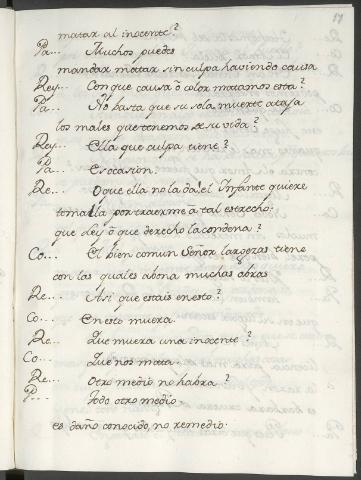 matar al inocente?
Pa... Muchos puedes
mandar matar sin culpa haviendo causa
Rey... Con que causa ò color matamos esta?
Pa... No basta que su sola muerte ataja
los males que tenemos de su vida?
Rey... Ella que culpa tiene?
Pa... Es ocasion.
Re... O que ella no la dà! el Infante quiere
tomalla por traerme â tal estrecho:
que Ley ô que derecho la condena?
Co... El bien comun Señor largezas tiene
con las quales abona muchas obras
Re... Asi que estais en esto?
Co... En esto muera.
Re... Que muera una inocente?
Co... Que nos mata.
Re... Otro medio no habra?
P... Todo otro medio
es daño conocido, no remedio.